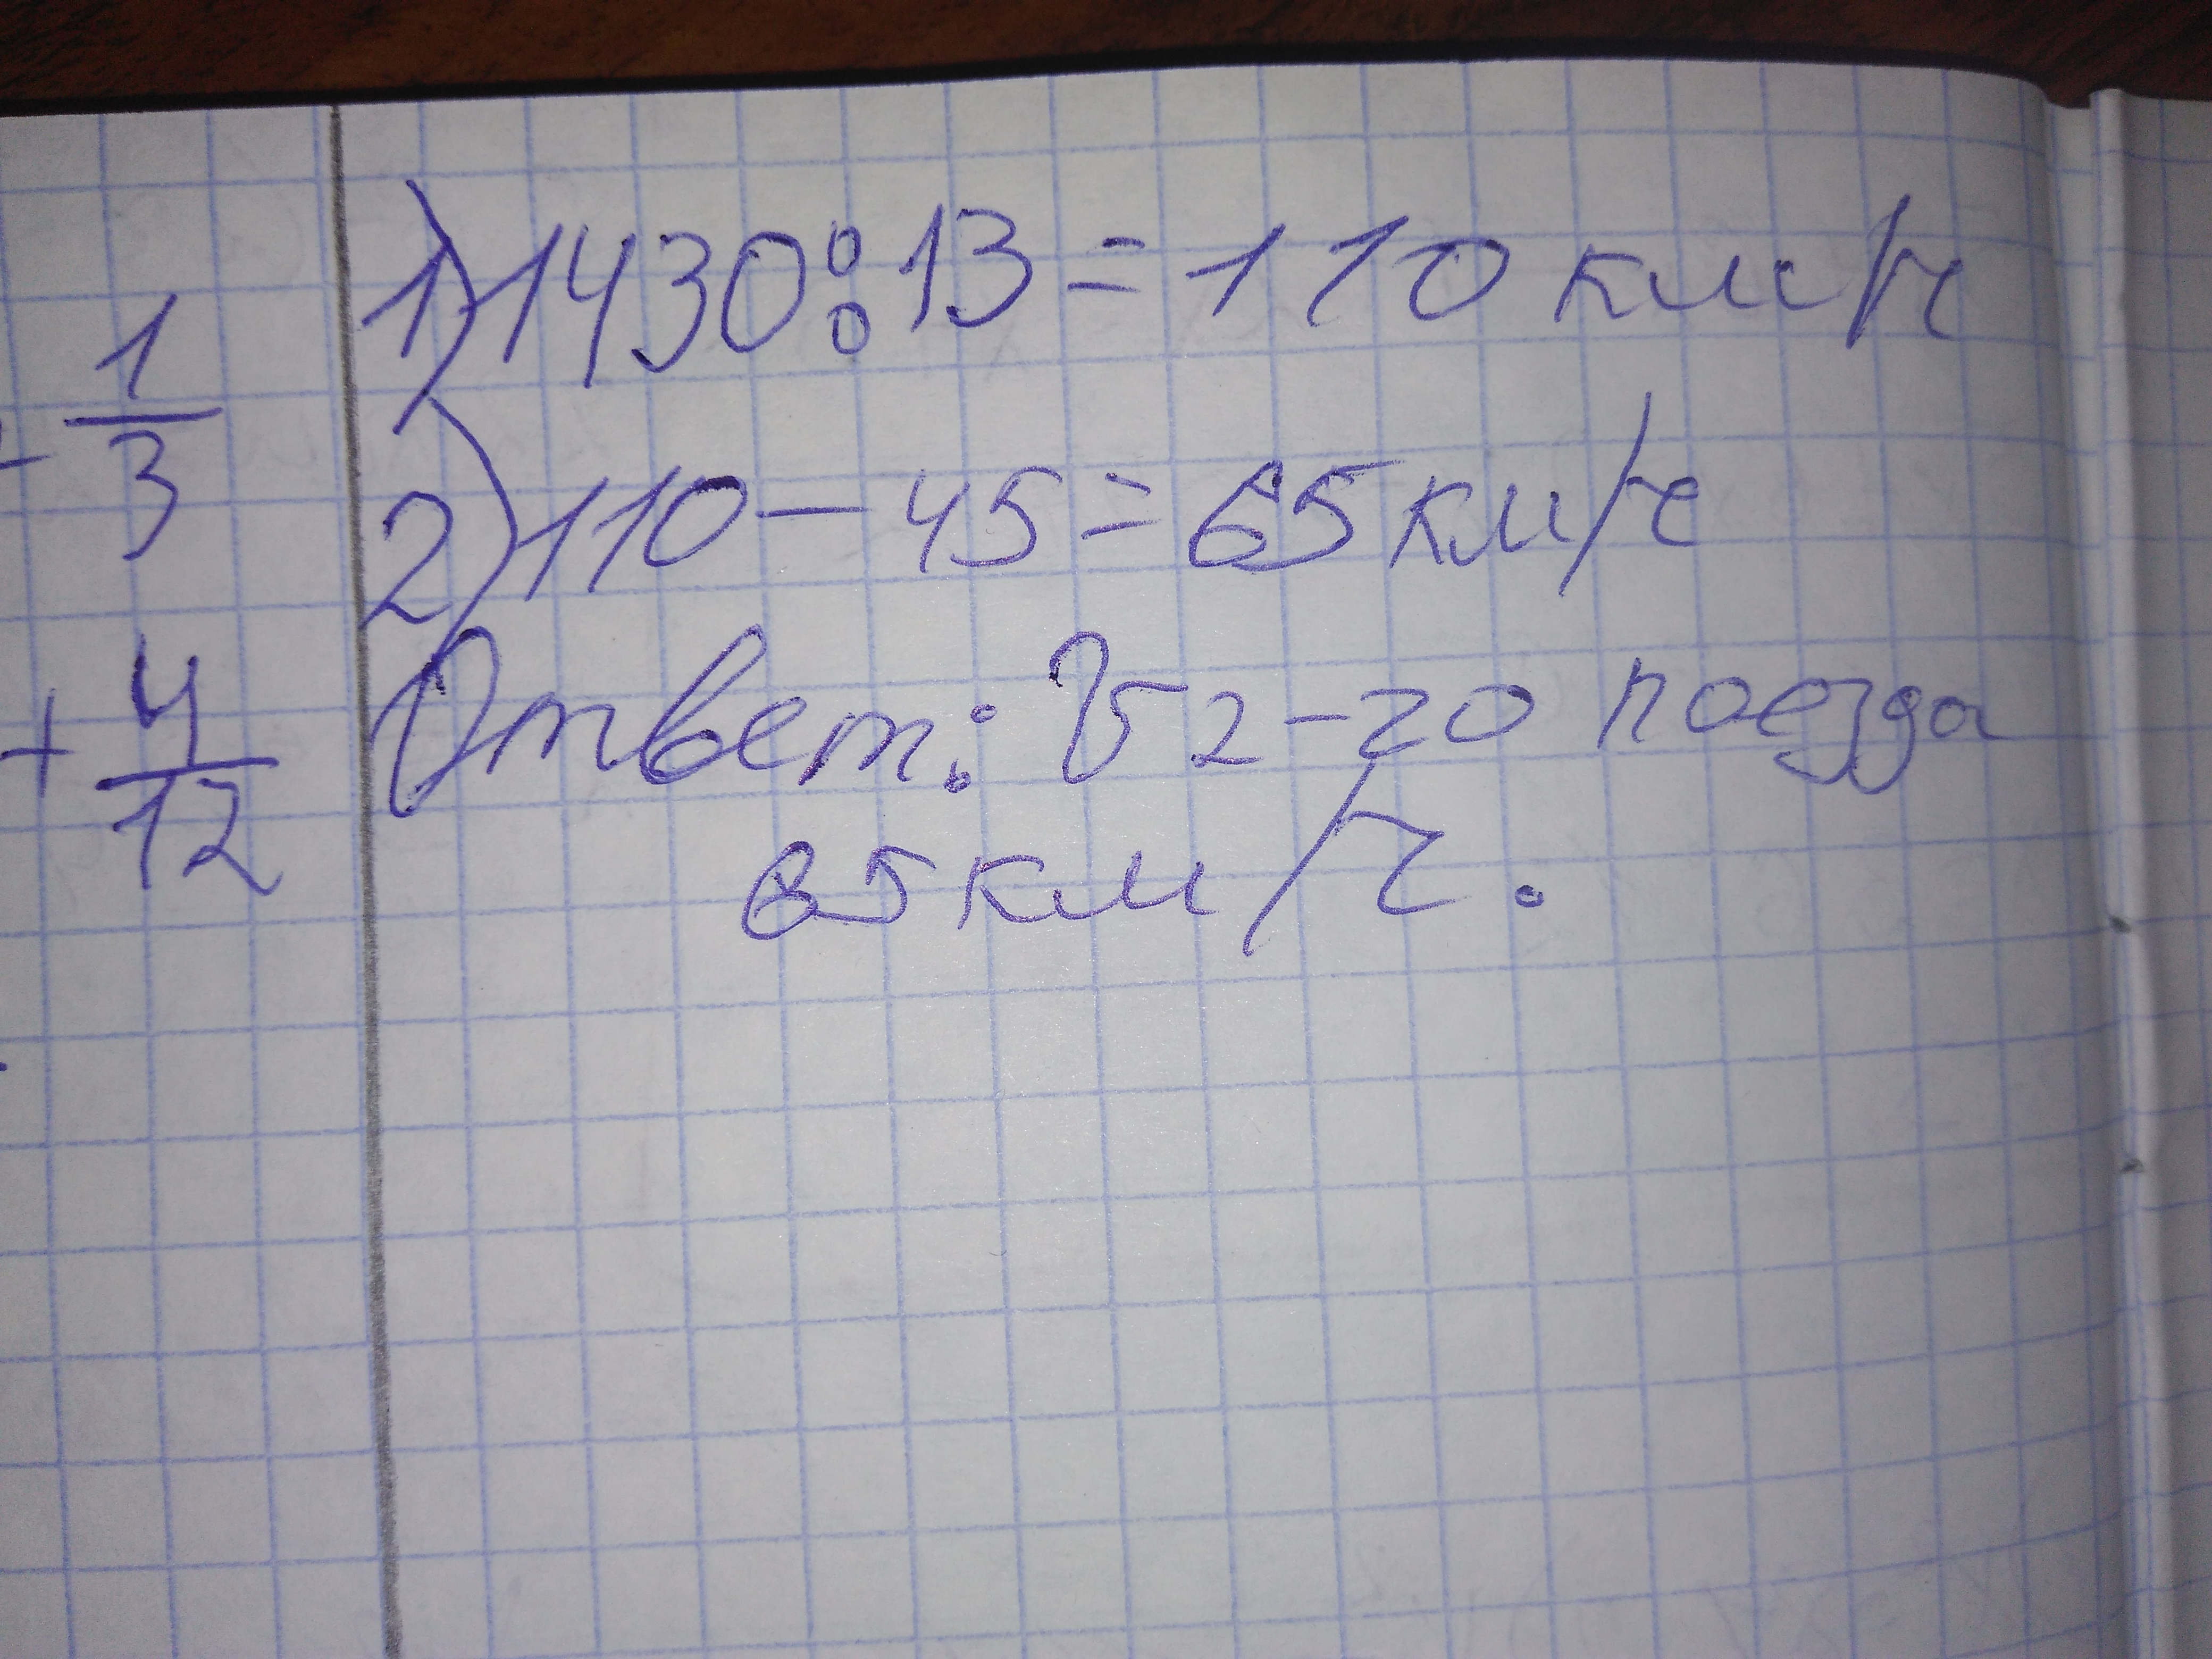 1) 1430:13=110 км/ч
2) 110-45=65 км/ч
Ответ: V 2-го поезда
65 км/ч.
- 1/3
+ 4/12